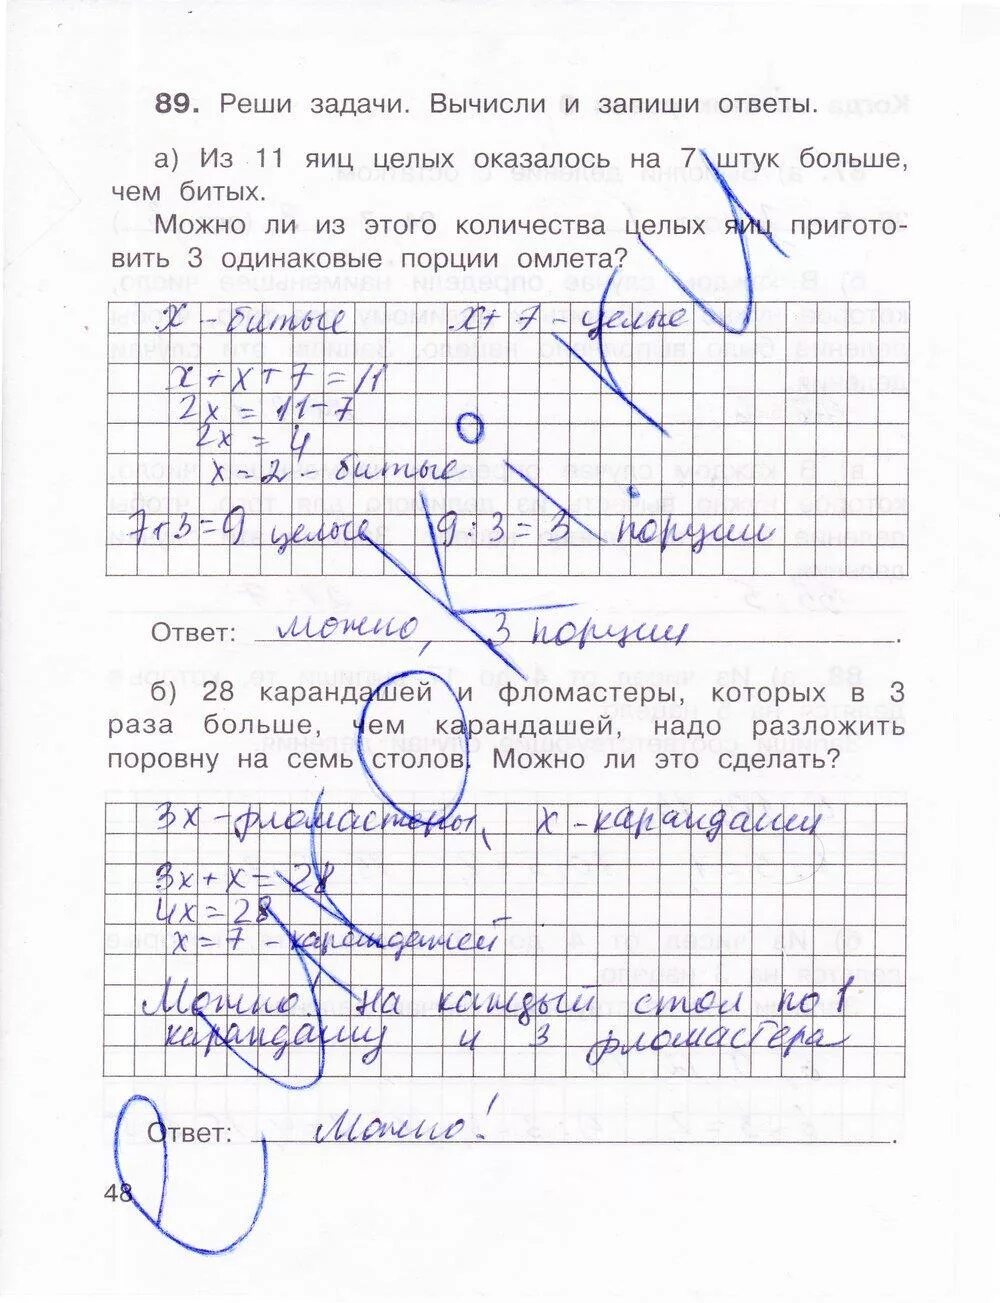 89. Реши задачи. Вычисли и запиши ответы.
а) Из 11 яиц целых оказалось на 7 штук больше,
чем битых.
Можно ли из этого количества целых яиц пригото-
вить 3 одинаковые порции омлета?
х - битые х + 7 - целые
х + х + 7 = 11
2х = 11 - 7
2х = 4
х = 2 - битые
7 + 3 = 9 целые 9 : 3 = 3 порции
Ответ: можно, 3 порции.
б) 28 карандашей и фломастеры, которых в 3
раза больше, чем карандашей, надо разложить
поровну на семь столов. Можно ли это сделать?
3х - фломастеры, х - карандаши
3х + х = 28
4х = 28
х = 7 - карандашей
Можно! На каждый стол по 1
карандашу и 3 фломастера
Ответ: Можно!.
48